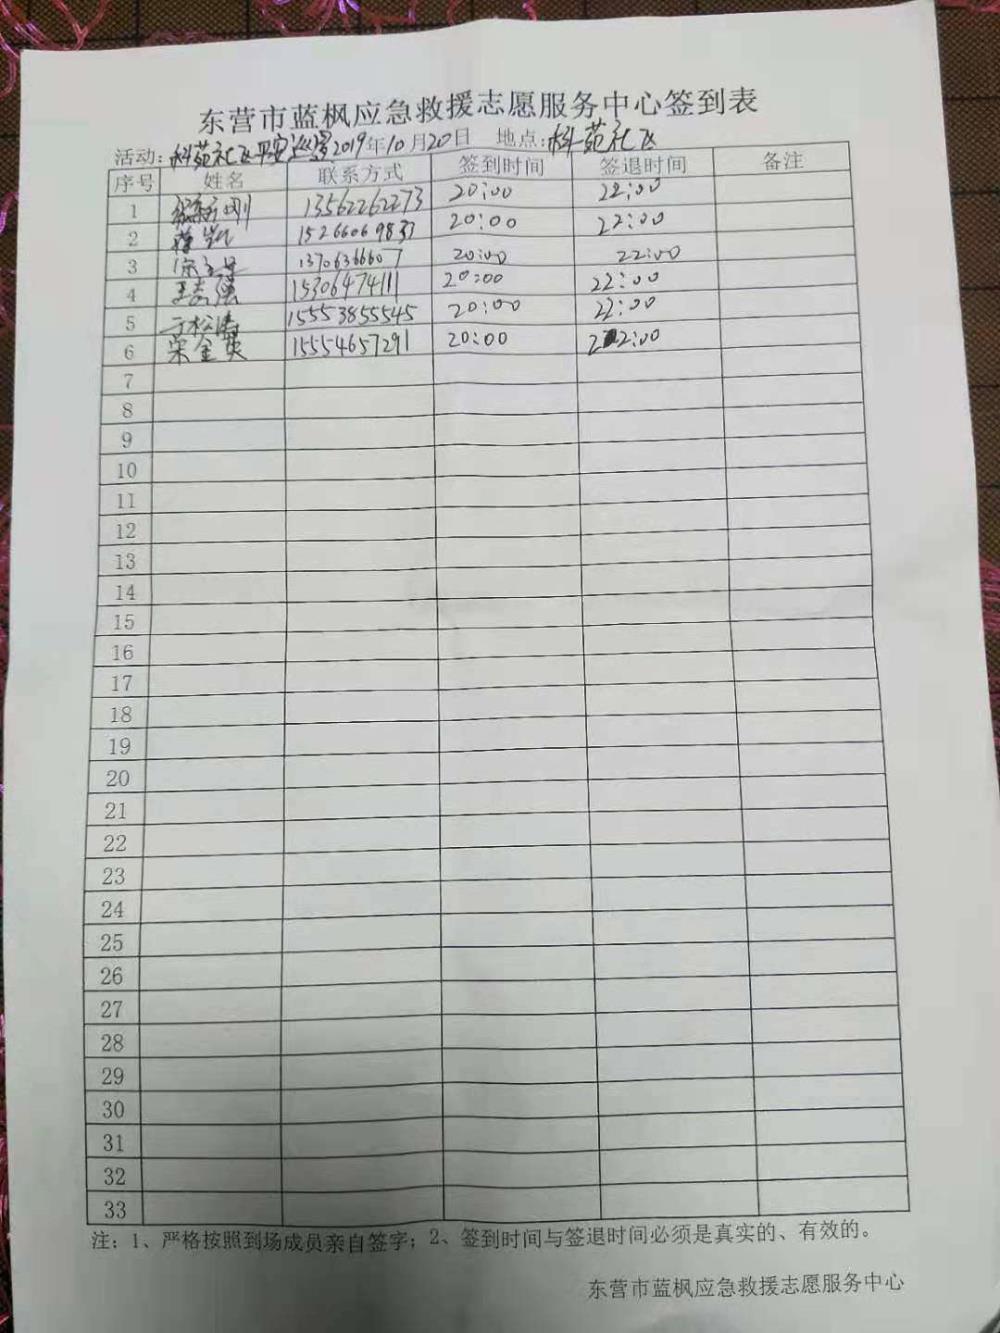 东营市蓝枫应急救援志愿服务中心签到表
活动:科苑社区平安巡逻2019年10月20日 地点:科苑社区
序号 姓名 联系方式 签到时间 签退时间 备注
1 刚 13562262273 20:00 22:00
2 15266069833 20:00 22:00
3 13706366607 20:00 22:00
4 王志强 15306474111 20:00 22:00
5 于松涛 15553855545 20:00 22:00
6 荣金英 15554657291 20:00 22:00
7
8
9
10
11
12
13
14
15
16
17
18
19
20
21
22
23
24
25
26
27
28
29
30
31
32
33
注:1、严格按照到场成员亲自签字;2、签到时间与签退时间必须是真实的、有效的。
东营市蓝枫应急救援志愿服务中心